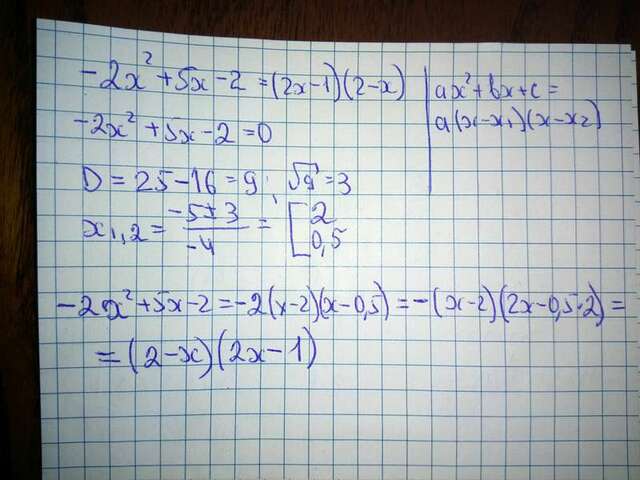 -2x²+5x-2=(2x-1)(2-x)
ax²+bx+c=
a(x-x₁)(x-x₂)
-2x²+5x-2=0
D=25-16=9; √9=3
x₁,₂=(-5±3)/(-4)=[2
0,5
-2x²+5x-2=-2(x-2)(x-0,5)=-(x-2)(2x-0,5·2)=
=(2-x)(2x-1)